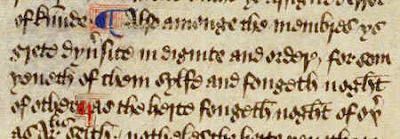 of kinde Also amonge the membres ys
grete dyũsite in dignite and order, for som
youeth of them silfe and fongeth noght
of other as the herte fongeth noght of oþ̛